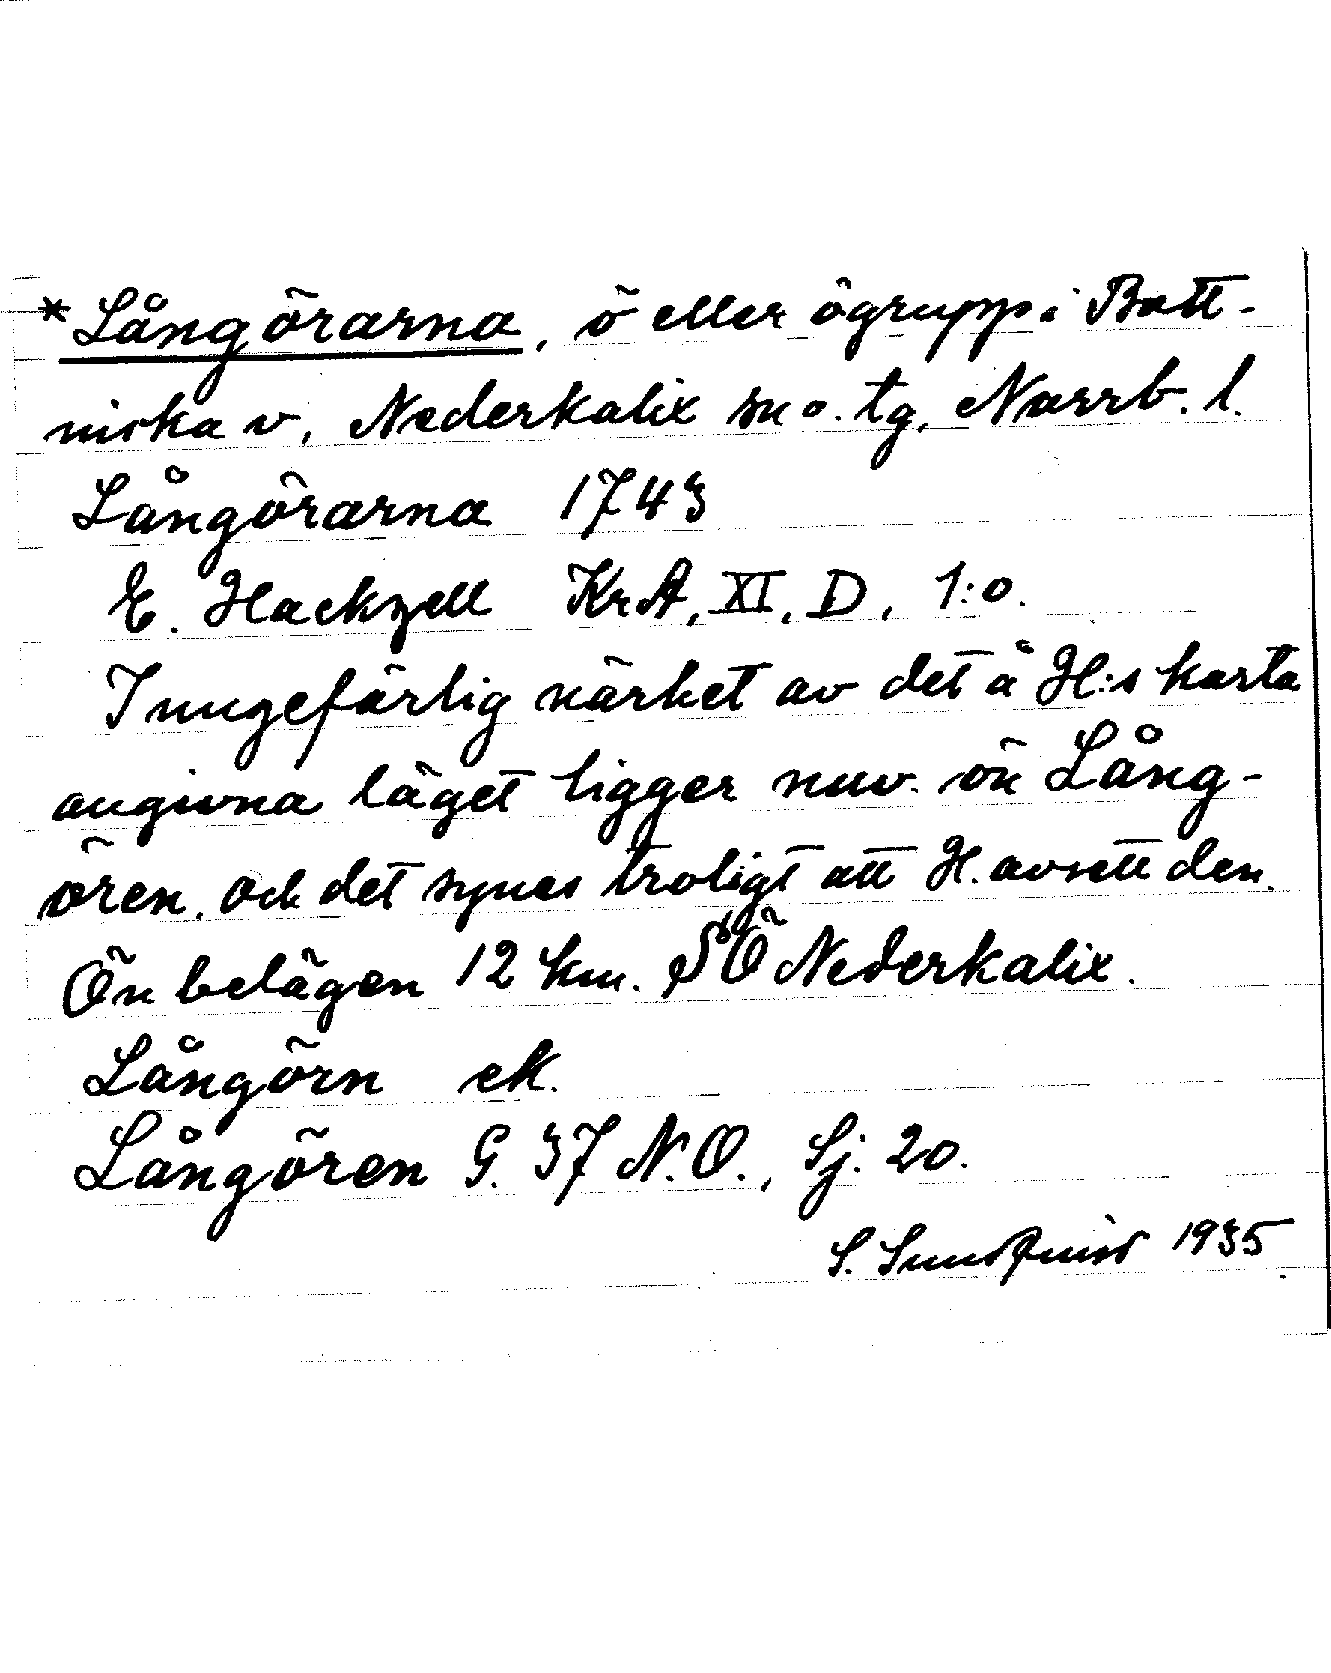 *Långörarna, ö eller ögrupp i Bott-
niska v., Nederkalix sn o. tg, Norrb. l.
Långörarna 1743
E. Hackzell KrA, XI, D, 1:o.
I ungefärlig närhet av det å H:s karta
angivna läget ligger nuv. ön Lång-
ören, och det synes troligt att H. avsett den.
Ön belägen 12 km. SÖ Nederkalix.
Långörn ek.
Långören G. 37 N.O., Sj. 20.
S. Sundquist 1935